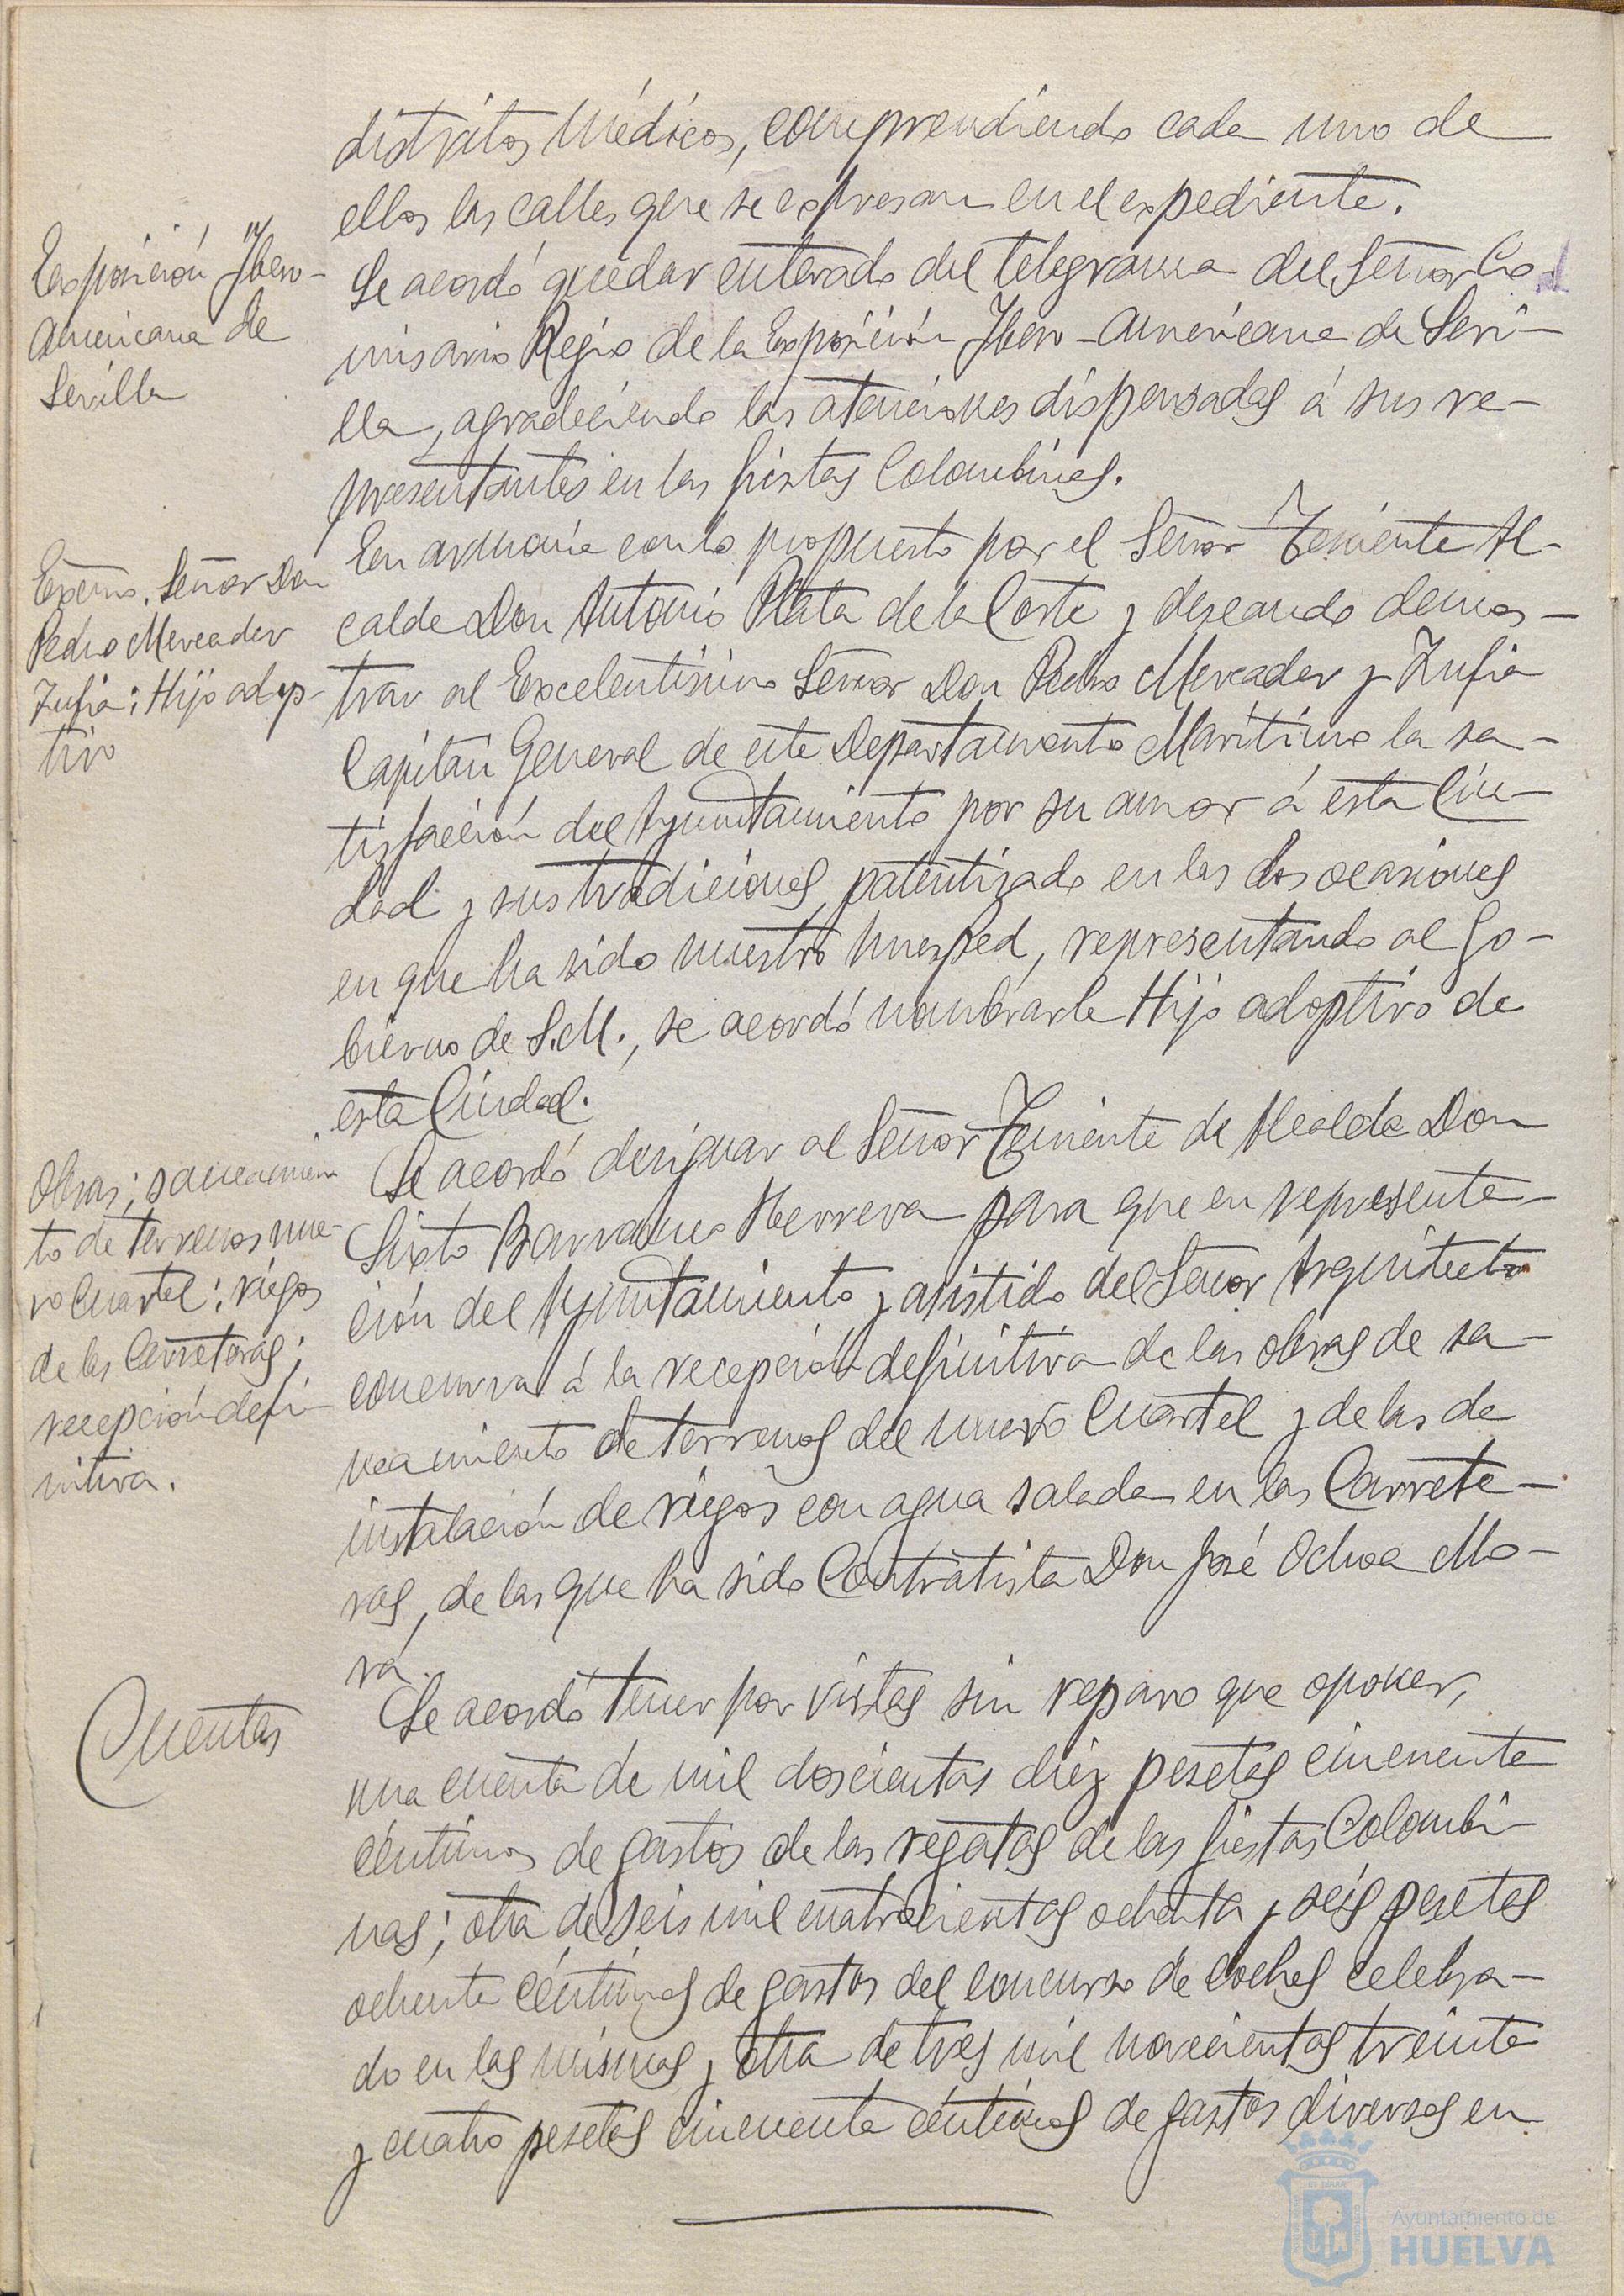 distritos Médicos, comprendiendo cada uno de
ellos las calles que se expresan en el expediente.
Exposición Ibero-
Americana de
Sevilla
Se acordó quedar enterado del telegrama del Señor Co
misario Regio de la Exposición Ibero-Americana de Sevi-
lla, agradeciendo las atenciones dispensadas á sus re-
presentantes en las fiestas Colombinas.
Excmo. Señor Don
Pedro Mercader
Zufia: Hijo adop-
tivo
En armonía con lo propuesto por el Señor Teniente Al-
calde Don Antonio Plata de la Corte y deseando demos-
trar al Excelentísimo Señor Don Pedro Mercader y Zufia
Capitán General de este Departamento Marítimo la sa-
tisfacción del Ayuntamiento por su amor á esta Ciu-
dad y sus tradiciones, patentizado en las dos ocasiones
en que ha sido nuestro huesped, representando al Go-
bierno de S.M., se acordó nombrarle Hijo adoptivo de
esta Ciudad.
Obras; saneamien
to de terrenos nue-
vo Cuartel; riegos
de las Carreteras;
recepción defi-
nitiva.
Se acordó designar al Señor Teniente de Alcalde Don
Sixto Barranco Herrera para que en representa-
ción del Ayuntamiento y asistido del Señor Arquitecto
concurra á la recepción definitiva de las obras de sa-
neamiento de terrenos del nuevo Cuartel y de las de
instalación de riegos con agua salada en las Carrete-
ras, de las que ha sido Contratista Don José Ochoa Mo-
ra.
Cuentas
Se acordó tener por vistas sin reparo que oponer,
una cuenta de mil doscientas diez pesetas cincuenta
céntimos de gastos de las regatas de las fiestas Colombi-
nas; otra de seis mil cuatrocientas ochenta y seis pesetas
ochenta céntimos de gastos del concurso de coches celebra-
do en las mismas y otra de tres mil novecientas treinta
y cuatro pesetas cincuenta céntimos de gastos diversos en
Ayuntamiento de
HUELVA